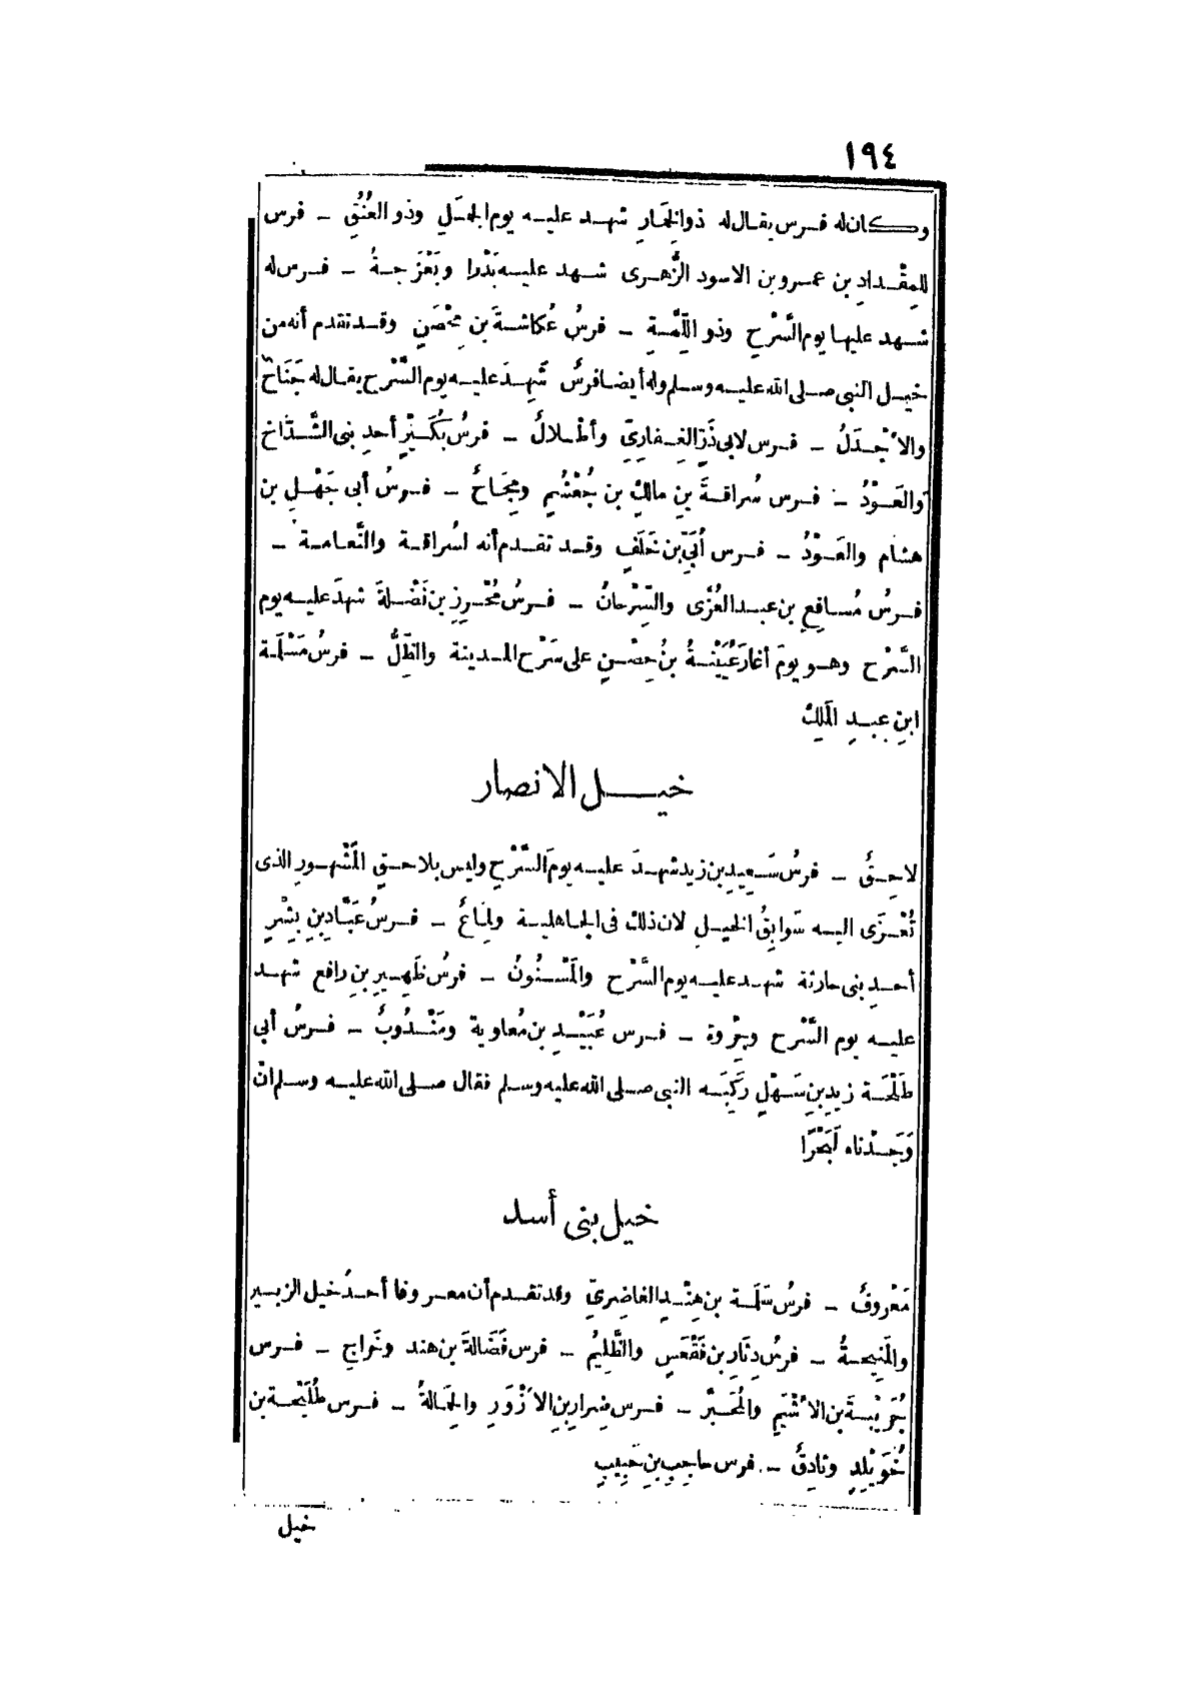 ١٩٤
وكان له فرس يقال له ذو الخِمَارِ شهد عليه يوم الجمَلِ وذو العُنُقِ - فرس
للمِقْدادِ بن عمرو بن الاسود الزُّهرى شهد عليه بَدْرا وبَعْزَجةُ - فرس له
شهد عليها يوم السَّرْحِ وذو اللِّمَّةِ - فرسُ عُكاشةَ بنِ مِحْصَنٍ وقد تقدم أنه من
خيل النبى صلى الله عليه وسلم وله أيضا فرسٌ شَهِدَ عليه يوم السَّرْح يقال له جَنَاحٌ
والأَجْدَلُ - فرس لابى ذَرٍّ الغِفارِىّ وأطْلالُ - فرسُ بُكَيْرٍ أحدِ بنى الشَّدَّاخ
والعَوْدُ - فرس سُراقةَ بنِ مالكِ بن جُعْشُمٍ ومِجَاحٌ - فرسُ أبى جَهْلِ بن
هشام والعَوْدُ - فرس أُبَىِّ بن خَلَفٍ وقد تقدم أنه لسُراقة والنَّعامة -
فرسُ مُسافِعِ بن عبد العُزَّى والسِّرْحانُ - فرسُ مُحْرِزِ بن نَضْلةَ شهدَ عليه يوم
السَّرْح وهو يومَ أغارَ عُيَيْنةُ بنُ حِصْنٍ على سَرْح المدينة والظِّلُّ - فرسُ مَسْلَمة
ابنِ عبدِ المَلِكْ
خيل الانصار
لاحِقٌ - فرسُ سَعِيدِ بن زيد شهدَ عليه يومَ السَّرْحِ وليس بلاحقٍ المَشْهورِ الذى
تُعْزَى اليه سَوابِقُ الخيلِ لان ذلك فى الجاهلية ولمَاعٌ - فرسُ عَبَّادِ بنِ بِشْرٍ
أحدِ بنى حارثة شهد عليه يوم السَّرْح والمَسْنُونُ - فرسُ ظَهِيرِ بنِ رافع شهد
عليه يوم السَّرْح وجِرْوة - فرس عُبَيْدِ بن مُعاوية ومَنْدُوبٌ - فرسُ أبى
طَلْحَة زيدِ بنِ سَهْلٍ رَكِبَه النبى صلى الله عليه وسلم فقال صلى الله عليه وسلم انْ
وَجَدْناه لَبَحْرًا
خيل بنى أسد
مَعْروفٌ - فرسُ سَلَمة بن هِنْدٍ الغاضِرِىِّ وقد تقدم أن معروفا أحدُ خيل الزبير
والمَنِيحةُ - فرسُ دِثَارِ بن فَقْعَسٍ والظَّلِيمُ - فرس فَضَالةَ بن هند ونَوَاحِ - فرس
جُرَيْبةَ بن الأَشْيَمِ والمُحَبَّرُ - فرس ضِرارِ بنِ الأَزْوَرِ والحِمَالةُ - فرس طُلَيْحة بن
خُوَيْلِدٍ وثادِقٌ - فرس حاجِبِ بنِ حَبِيبٍ
خيل